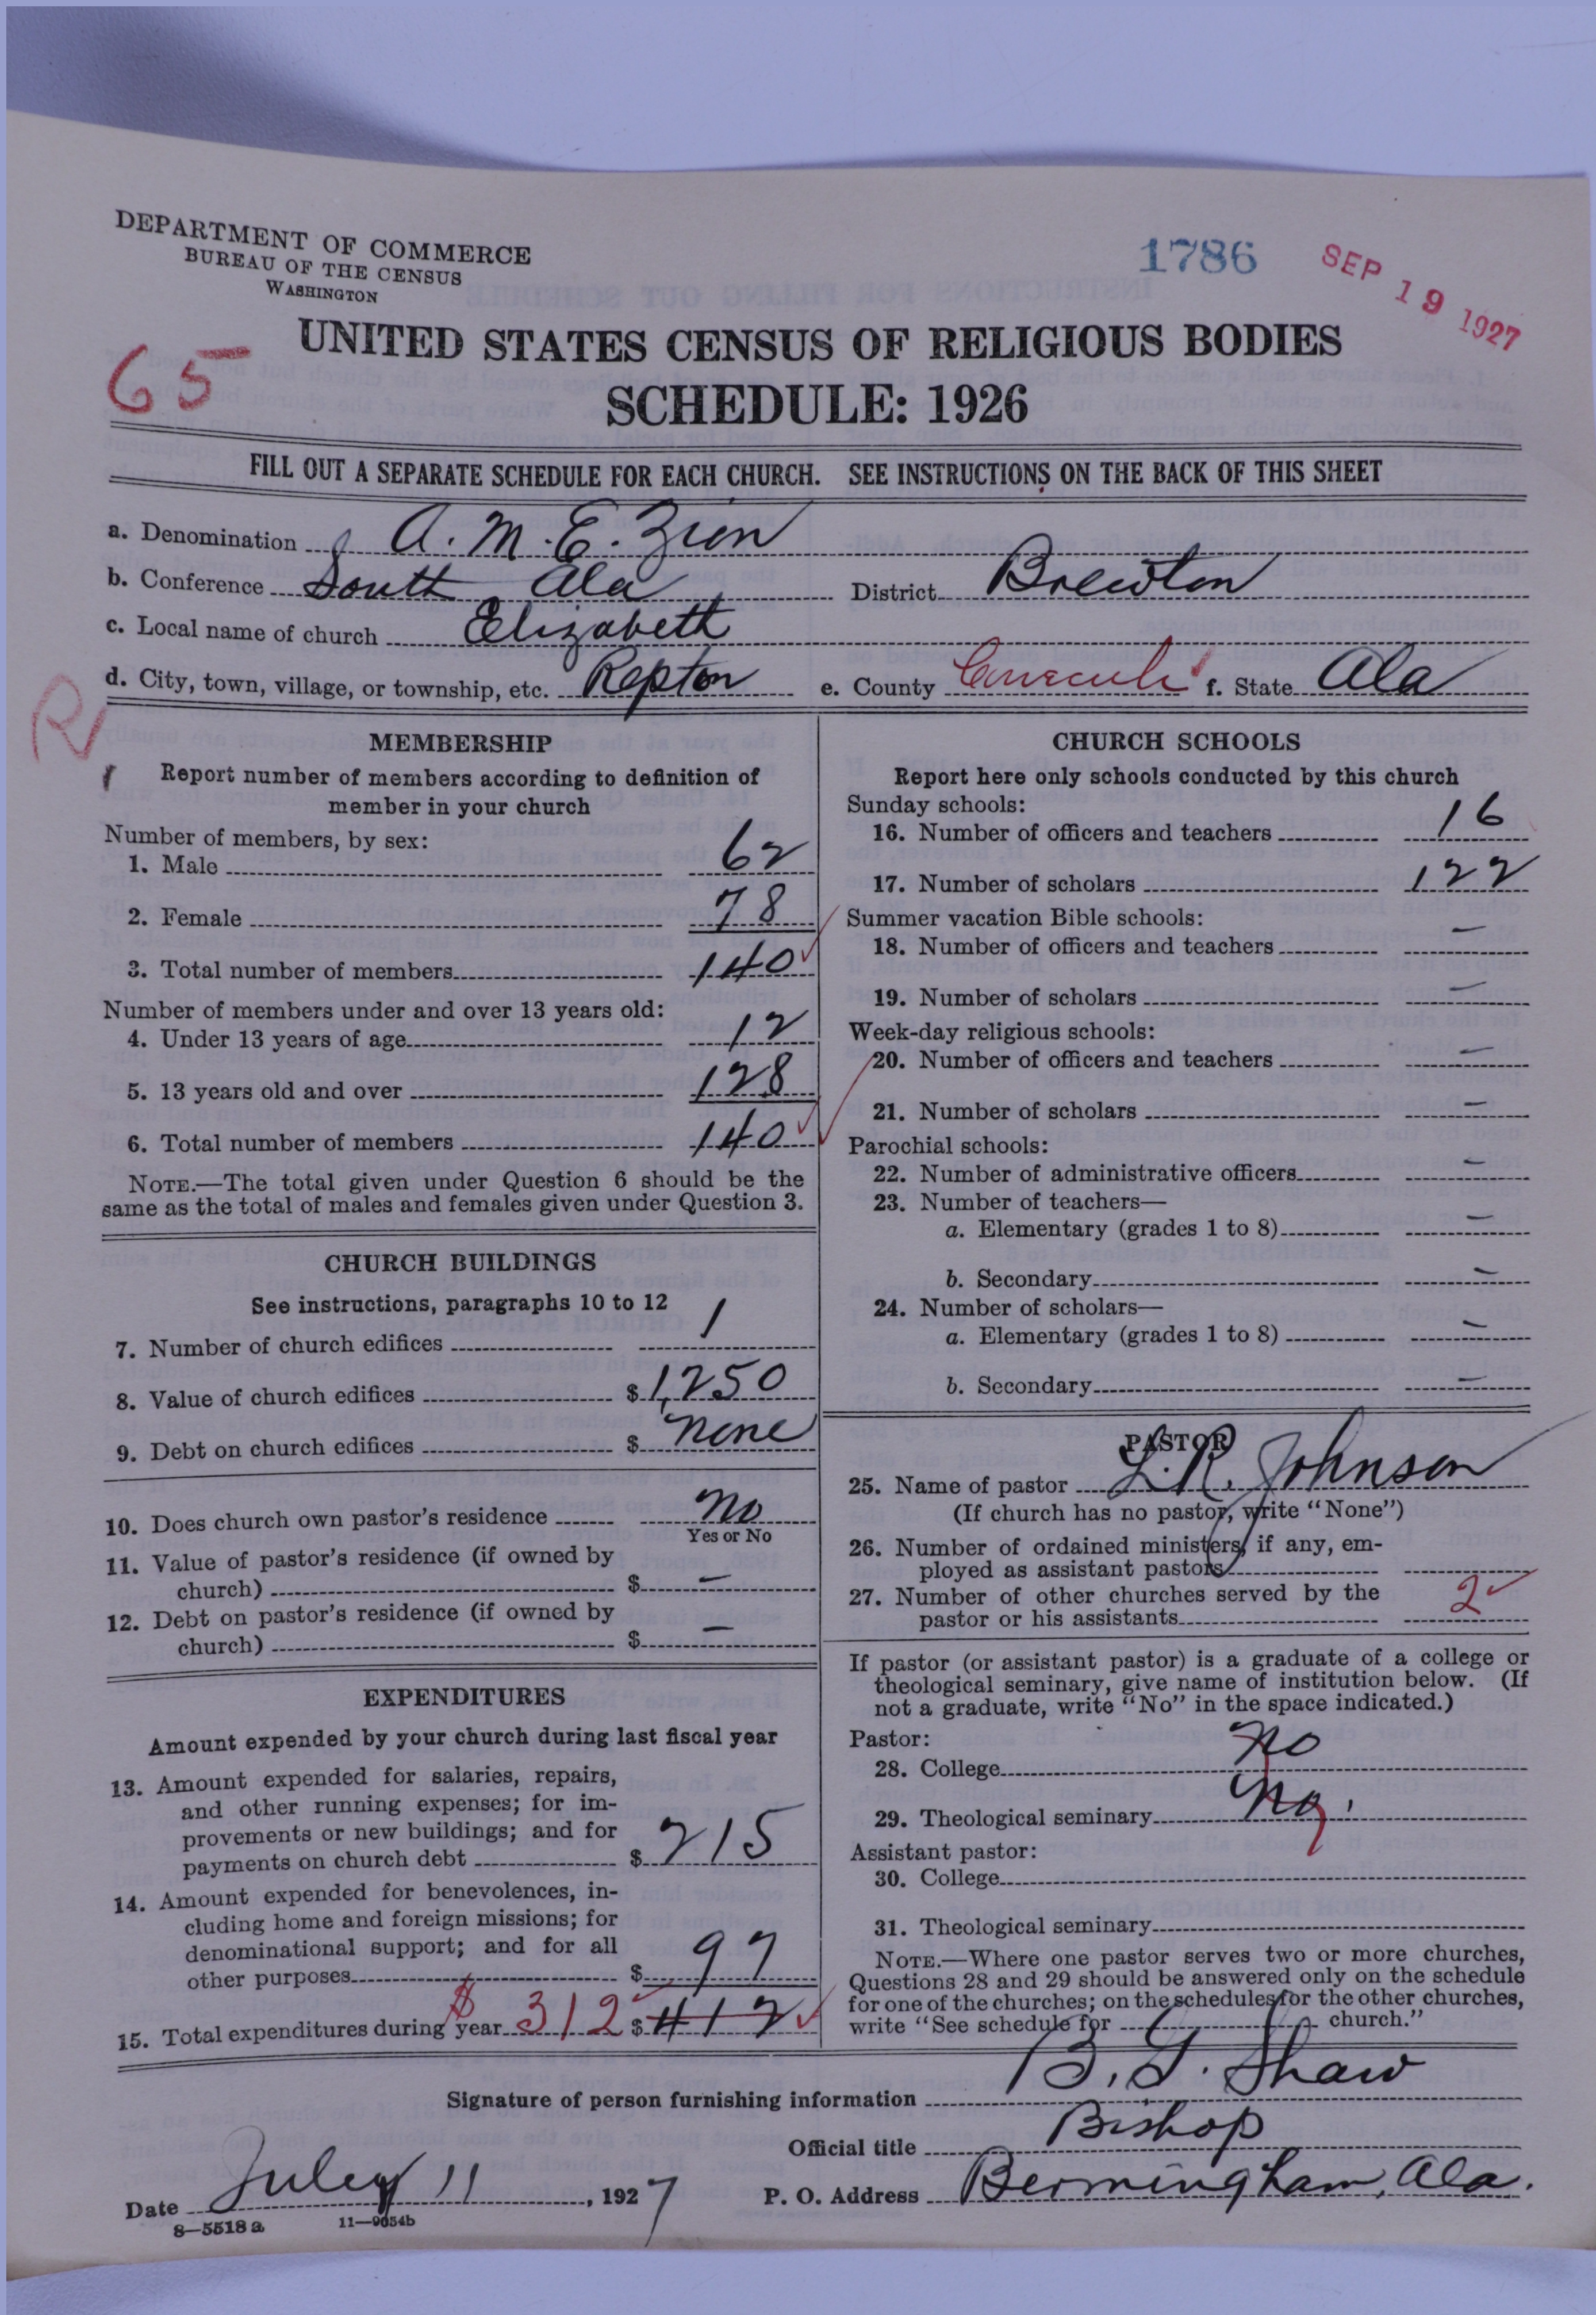 DEPARTMENT OF COMMERCE
BUREAU OF THE CENSUS
WASHINGTON
1786
SEP 19 1927
65
UNITED STATES CENSUS OF RELIGIOUS BODIES
SCHEDULE: 1926
FILL OUT A SEPARATE SCHEDULE FOR EACH CHURCH. SEE INSTRUCTIONS ON THE BACK OF THIS SHEET
a. Denomination A. M. E. Zion
b. Conference South Ala District Brewton
c. Local name of church Elizabeth
d. City, town, village, or township, etc. Repton e. County Conecuh f. State Ala
R
MEMBERSHIP
Report number of members according to definition of
member in your church
Number of members, by sex:
1. Male 62
2. Female 78
3. Total number of members 140
Number of members under and over 13 years old:
4. Under 13 years of age 12
5. 13 years old and over 128
6. Total number of members 140
NOTE.—The total given under Question 6 should be the
same as the total of males and females given under Question 3.
CHURCH BUILDINGS
See instructions, paragraphs 10 to 12
7. Number of church edifices 1
8. Value of church edifices $ 1,250
9. Debt on church edifices $ none
10. Does church own pastor's residence no
Yes or No
11. Value of pastor's residence (if owned by
church) $ –
12. Debt on pastor's residence (if owned by
church) $ –
EXPENDITURES
Amount expended by your church during last fiscal year
13. Amount expended for salaries, repairs,
and other running expenses; for im-
provements or new buildings; and for
payments on church debt $ 215
14. Amount expended for benevolences, in-
cluding home and foreign missions; for
denominational support; and for all
other purposes $ 97
15. Total expenditures during year $ 312 $ 412
CHURCH SCHOOLS
Report here only schools conducted by this church
Sunday schools:
16. Number of officers and teachers 16
17. Number of scholars 122
Summer vacation Bible schools:
18. Number of officers and teachers –
19. Number of scholars –
Week-day religious schools:
20. Number of officers and teachers –
21. Number of scholars –
Parochial schools:
22. Number of administrative officers –
23. Number of teachers—
a. Elementary (grades 1 to 8) –
b. Secondary –
24. Number of scholars—
a. Elementary (grades 1 to 8) –
b. Secondary –
PASTOR
25. Name of pastor L. R. Johnson
(If church has no pastor, write "None")
26. Number of ordained ministers, if any, em-
ployed as assistant pastors
27. Number of other churches served by the
pastor or his assistants 2
If pastor (or assistant pastor) is a graduate of a college or
theological seminary, give name of institution below. (If
not a graduate, write "No" in the space indicated.)
Pastor:
28. College No
29. Theological seminary No
Assistant pastor:
30. College
31. Theological seminary
NOTE.—Where one pastor serves two or more churches,
Questions 28 and 29 should be answered only on the schedule
for one of the churches; on the schedules for the other churches,
write "See schedule for church."
Signature of person furnishing information B. G. Shaw
Official title Bishop
Date July 11, 1927 P. O. Address Bermingham, Ala.
8—5518 a 11—9054b